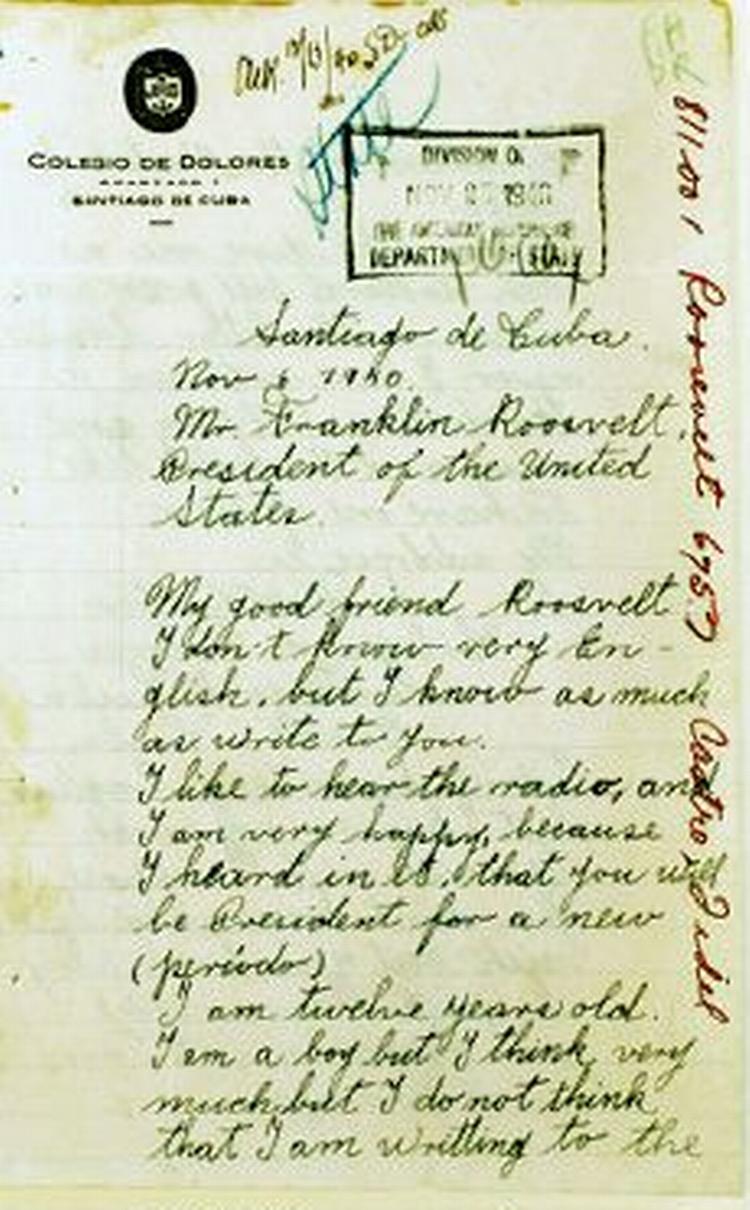 COLEGIO DE DOLORES
SANTIAGO DE CUBA
DIVISION OF
NOV 27 1940
DEPARTMENT OF STATE
Santiago de Cuba.
Nov 6 1940.
Mr. Franklin Roosvelt,
President of the United
States.
My good friend Roosvelt
I don't know very En-
glish, but I know as much
as write to you.
I like to hear the radio, and
I am very happy, because
I heard in it, that you will
be President for a new
(período)
I am twelve years old.
I am a boy but I think very
much but I do not think
that I am writting to the
811.001 Roosevelt 6757 Castro, Fidel